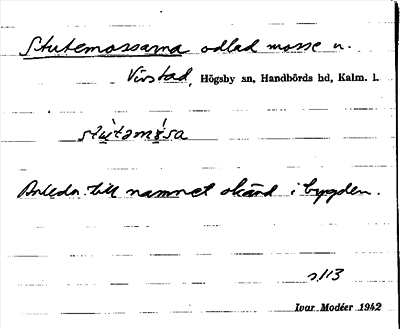 Stutemossarna odlad mosse u.
Virstad, Högsby sn, Handbörds hd, Kalm. l.
stùtəmȯ́sa
Anledn. till namnet okänd i bygden.
s. 113
Ivar Modéer 1942